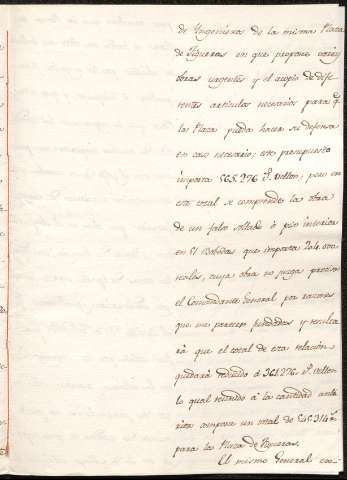 de Yngenieros de la misma Plaza
de Figueras en que propone varias
obras urgentes y el acopio de dife-
rentes articulos necesarios para q.e
la Plaza pueda hacer su defensa
en caso necesario; este presupuesto
importa 565.276 r.s vellon; pero en
este total se comprende la obra
de un falso sollado ó piso interior
en 51 Bobedas que importa 204.000
reales, cuya obra no juzga precisa
el Comandante General por razones
que me parecen fundadas y resulta-
rá que el total de esta relacion
quedará reducido á 361.276 r.s vellon
lo qual reunido á la cantidad ante-
rior compone un total de 545.314 r.s
para la Plaza de Figueras.
El mismo General con-